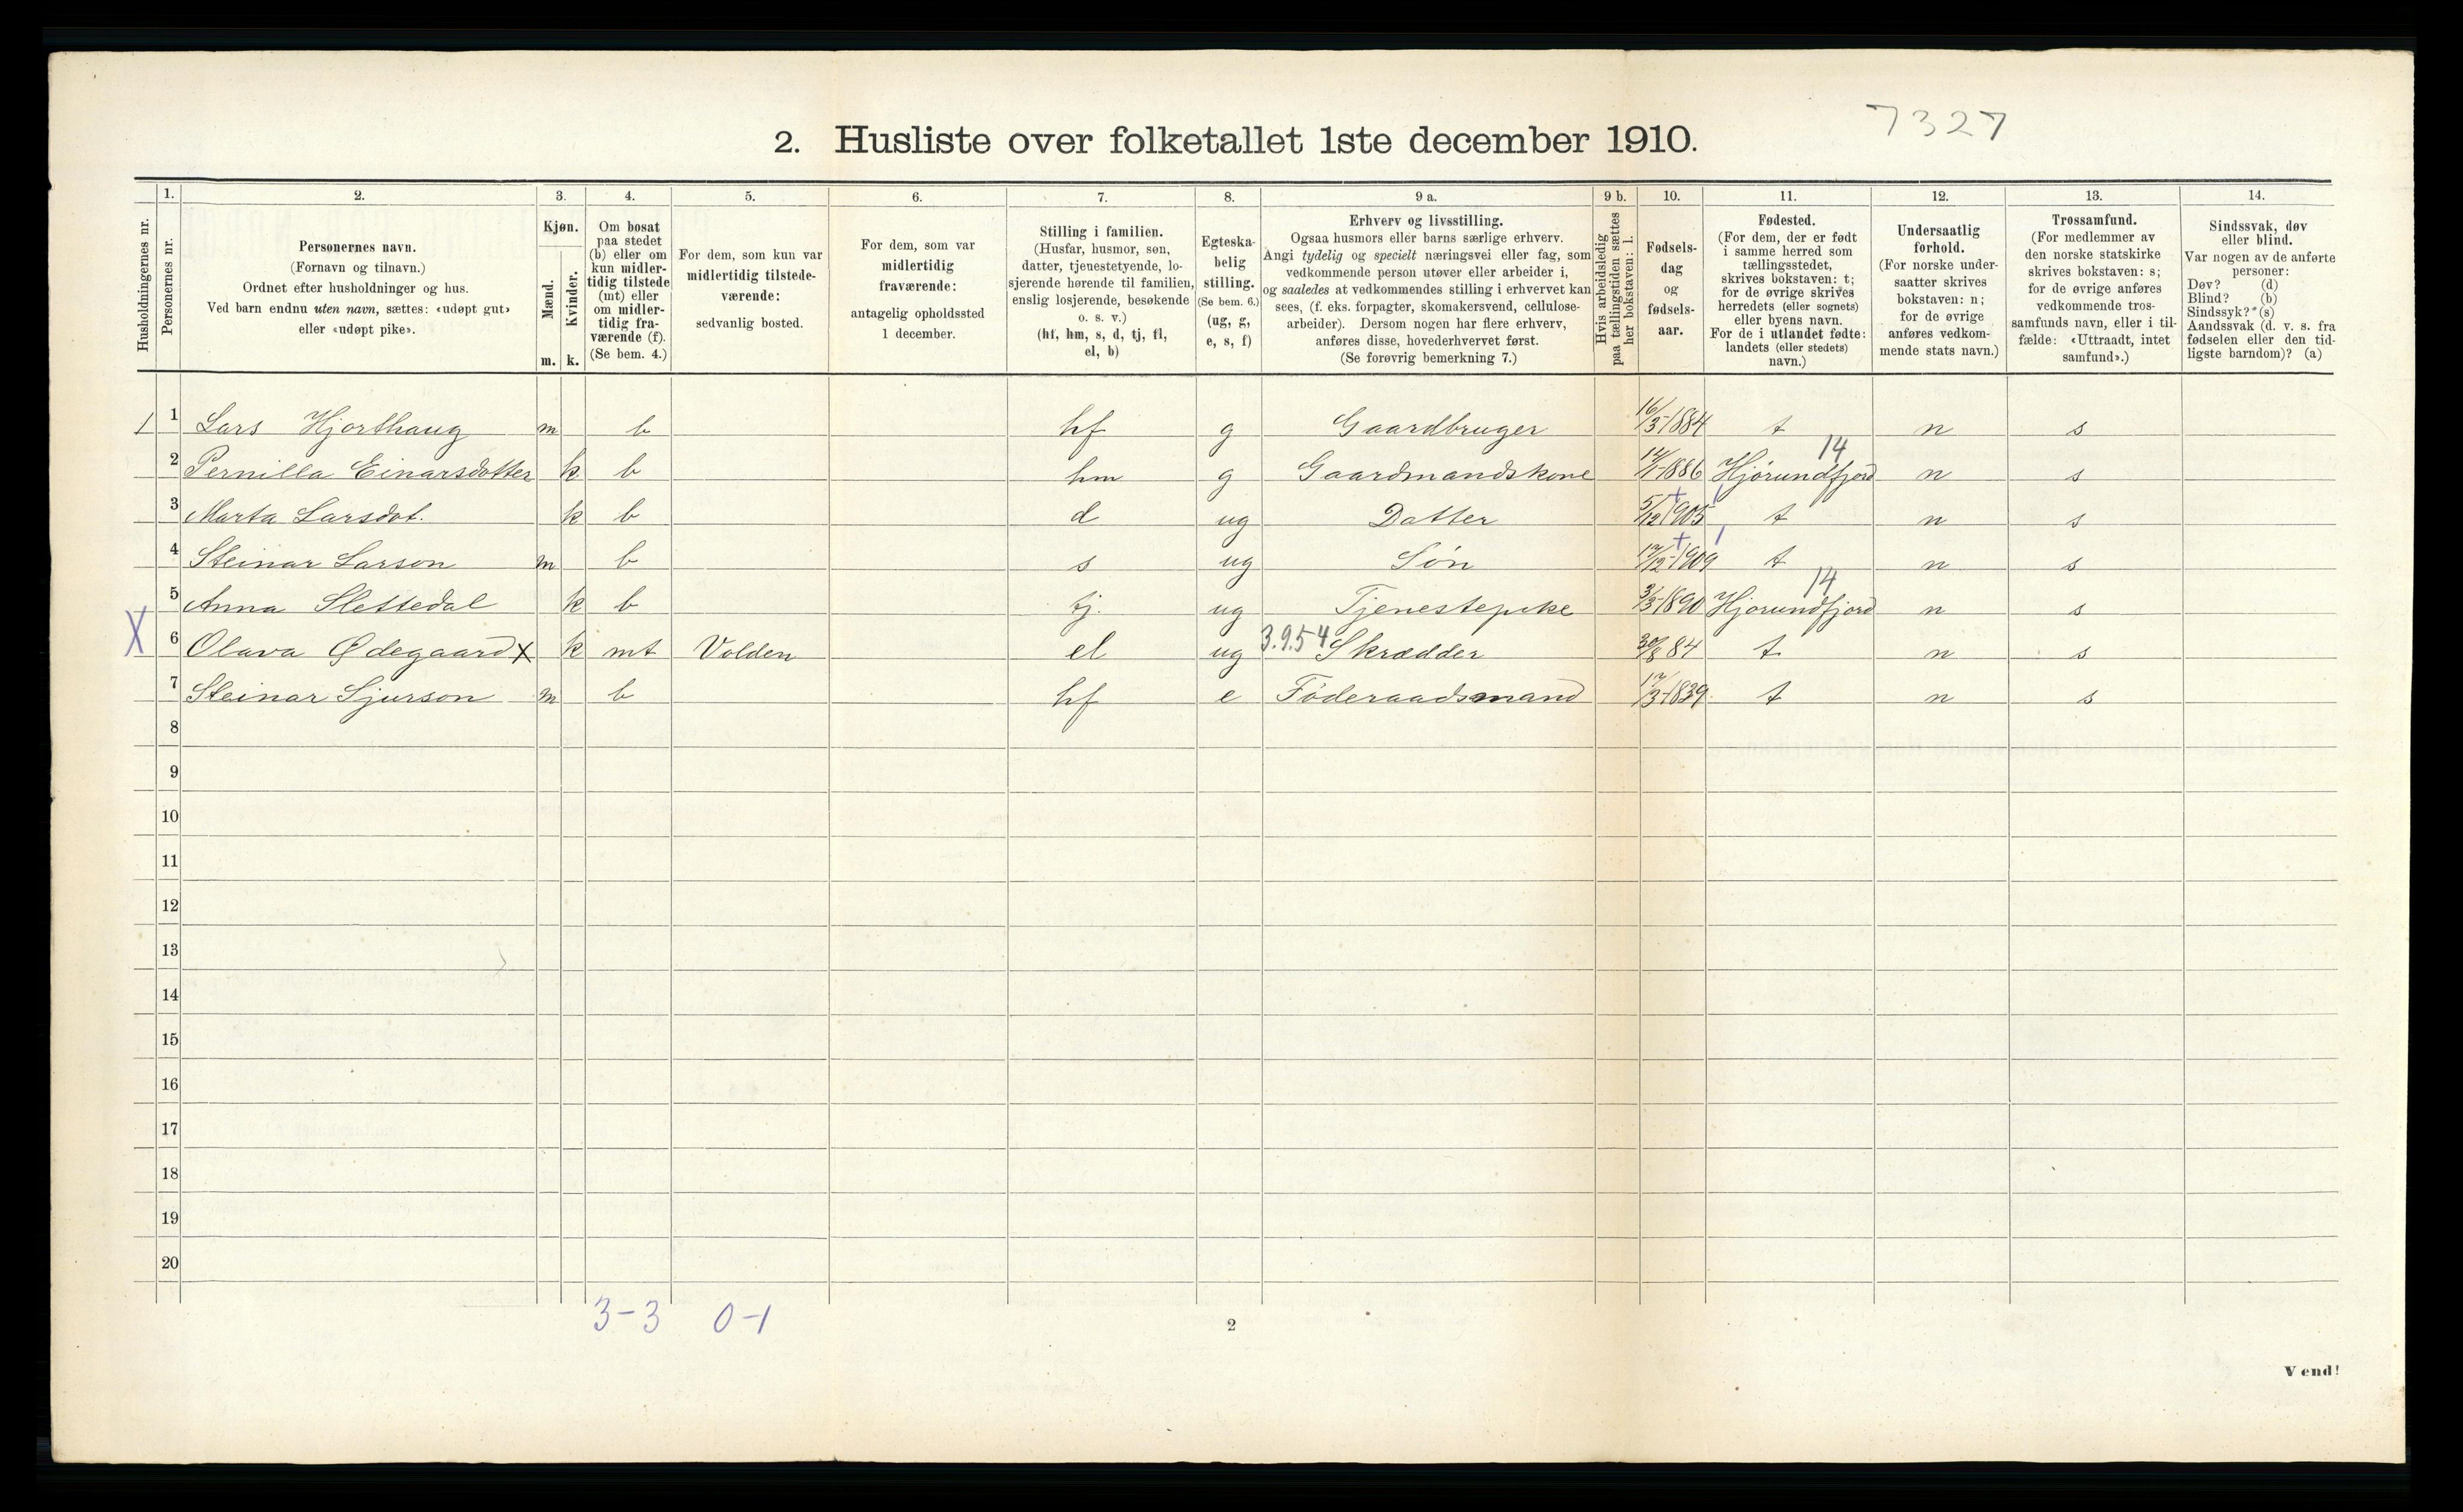 7327
2. Husliste over folketallet 1ste december 1910.
Husholdningernes nr.
1.
Personernes nr.
2.
Personernes navn.
(Fornavn og tilnavn.)
Ordnet efter husholdninger og hus.
Ved barn endnu uten navn, sættes: «udøpt gut»
eller «udøpt pike».
3.
Kjøn.
Mænd.
Kvinder.
m. k.
4.
Om bosat
paa stedet
(b) eller om
kun midler-
tidig tilstede
(mt) eller
om midler-
tidig fra-
værende (f).
(Se bem. 4.)
5.
For dem, som kun var
midlertidig tilstede-
værende:
sedvanlig bosted.
6.
For dem, som var
midlertidig
fraværende:
antagelig opholdssted
1 december.
7.
Stilling i familien.
(Husfar, husmor, søn,
datter, tjenestetyende, lo-
sjerende hørende til familien,
enslig losjerende, besøkende
o. s. v.)
(hf, hm, s, d, tj, fl,
el, b)
8.
Egteska-
belig
stilling.
(Se bem. 6.)
(ug, g,
e, s, f)
9 a.
Erhverv og livsstilling.
Ogsaa husmors eller barns særlige erhverv.
Angi tydelig og specielt næringsvei eller fag, som
vedkommende person utøver eller arbeider i,
og saaledes at vedkommendes stilling i erhvervet kan
sees, (f. eks. forpagter, skomakersvend, cellulose-
arbeider). Dersom nogen har flere erhverv,
anføres disse, hovederhvervet først.
(Se forøvrig bemerkning 7.)
9 b.
Hvis arbeidsledig
paa tællingstiden sættes
her bokstaven: l.
10.
Fødsels-
dag
og
fødsels-
aar.
11.
Fødested.
(For dem, der er født
i samme herred som
tællingsstedet,
skrives bokstaven: t;
for de øvrige skrives
herredets (eller sognets)
eller byens navn.
For de i utlandet fødte:
landets (eller stedets)
navn.)
12.
Undersaatlig
forhold.
(For norske under-
saatter skrives
bokstaven: n;
for de øvrige
anføres vedkom-
mende stats navn.)
13.
Trossamfund.
(For medlemmer av
den norske statskirke
skrives bokstaven: s;
for de øvrige anføres
vedkommende tros-
samfunds navn, eller i til-
fælde: «Uttraadt, intet
samfund».)
14.
Sindssvak, døv
eller blind.
Var nogen av de anførte
personer:
Døv? (d)
Blind? (b)
Sindssyk? (s)
Aandssvak (d. v. s. fra
fødselen eller den tid-
ligste barndom)? (a)
1 1 Lars Hjorthaug m b hf g Gaardbruger 16/3-1884 t n s
2 Pernilla Einarsdotter k b hm g Gaardmandskone 14/1-1886 Hjørundfjord 14 n s
3 Marta Larsdot. k b d ug Datter 5/12 1905 t n s
4 Steinar Larson m b s ug Søn 17/12-1909 t n s
5 Anna Slettedal k b tj. ug Tjenestepike 3/3-1890 Hjorundfjord 14 n s
X 6 Olava Ødegaard X k mt Volden el ug 3.9.54 Skrædder 30/8 84 t n s
7 Steinar Sjurson m b hf e Føderaadsmand 17/3-1839 t n s
8
9
10
11
12
13
14
15
16
17
18
19
20
3-3 0-1
2
Vend!